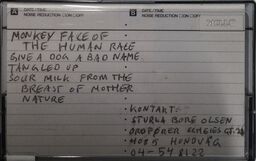 A DATE/TIME
NOISE REDUCTION □ON □OFF
B DATE/TIME
NOISE REDUCTION □ON □OFF
MONKEY FACE OF
THE HUMAN RACE
GIVE A DOG A BAD NAME
TANGLED UP
SOUR MILK FROM THE
BREAST OF MOTHER
NATURE
• KONTAKT:
• STURLA BORE OLSEN
•
• HUNDVÅG
• 04-54 81 22